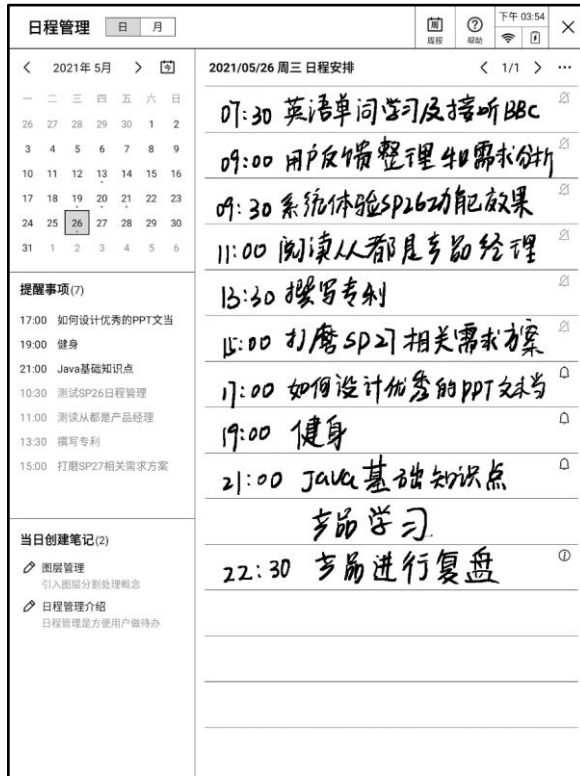 日程管理 日 月 周 周报 ? 帮助 下午 03:54
2021年 5月 今
一 二 三 四 五 六 日
26 27 28 29 30 1 2
3 4 5 6 7 8 9
10 11 12 13 14 15 16
17 18 19 20 21 22 23
24 25 26 27 28 29 30
31 1 2 3 4 5 6
提醒事项(7)
17:00 如何设计优秀的PPT文当
19:00 健身
21:00 Java基础知识点
10:30 测试SP26日程管理
11:00 测读从都是产品经理
13:30 撰写专利
15:00 打磨SP27相关需求方案
当日创建笔记(2)
图层管理
引入图层分割处理概念
日程管理介绍
日程管理是方便用户做待办
2021/05/26 周三 日程安排 1/1
07:30 英语单词学习及接听BBC
09:00 用户反馈整理和需求分析
09:30 系统体验SP26功能效果
11:00 阅读人人都是产品经理
13:30 撰写专利
15:00 打磨SP27相关需求方案
17:00 如何设计优秀的PPT文当
19:00 健身
21:00 Java基础知识点
产品学习
22:30 产品进行复盘